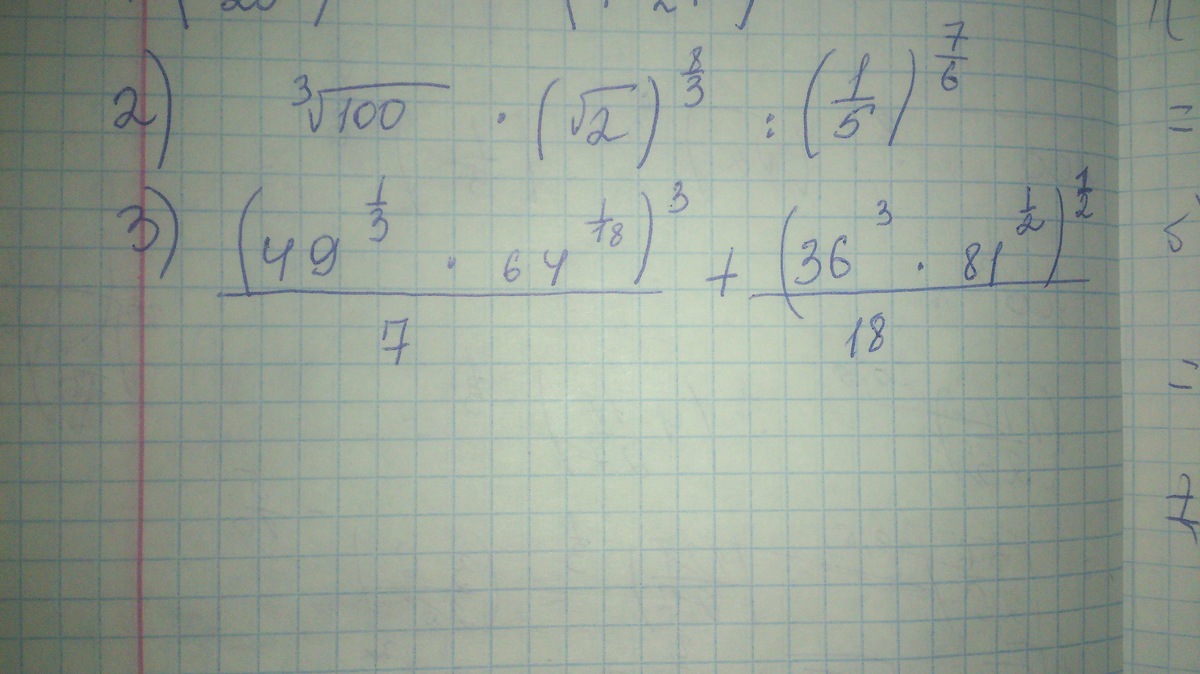 2) ∛100 · (√2)^(8/3) : (1/5)^(7/6)
3) (49^(1/3) · 64^(1/18))^3 / 7 + (36^3 · 81^(1/2))^(1/2) / 18